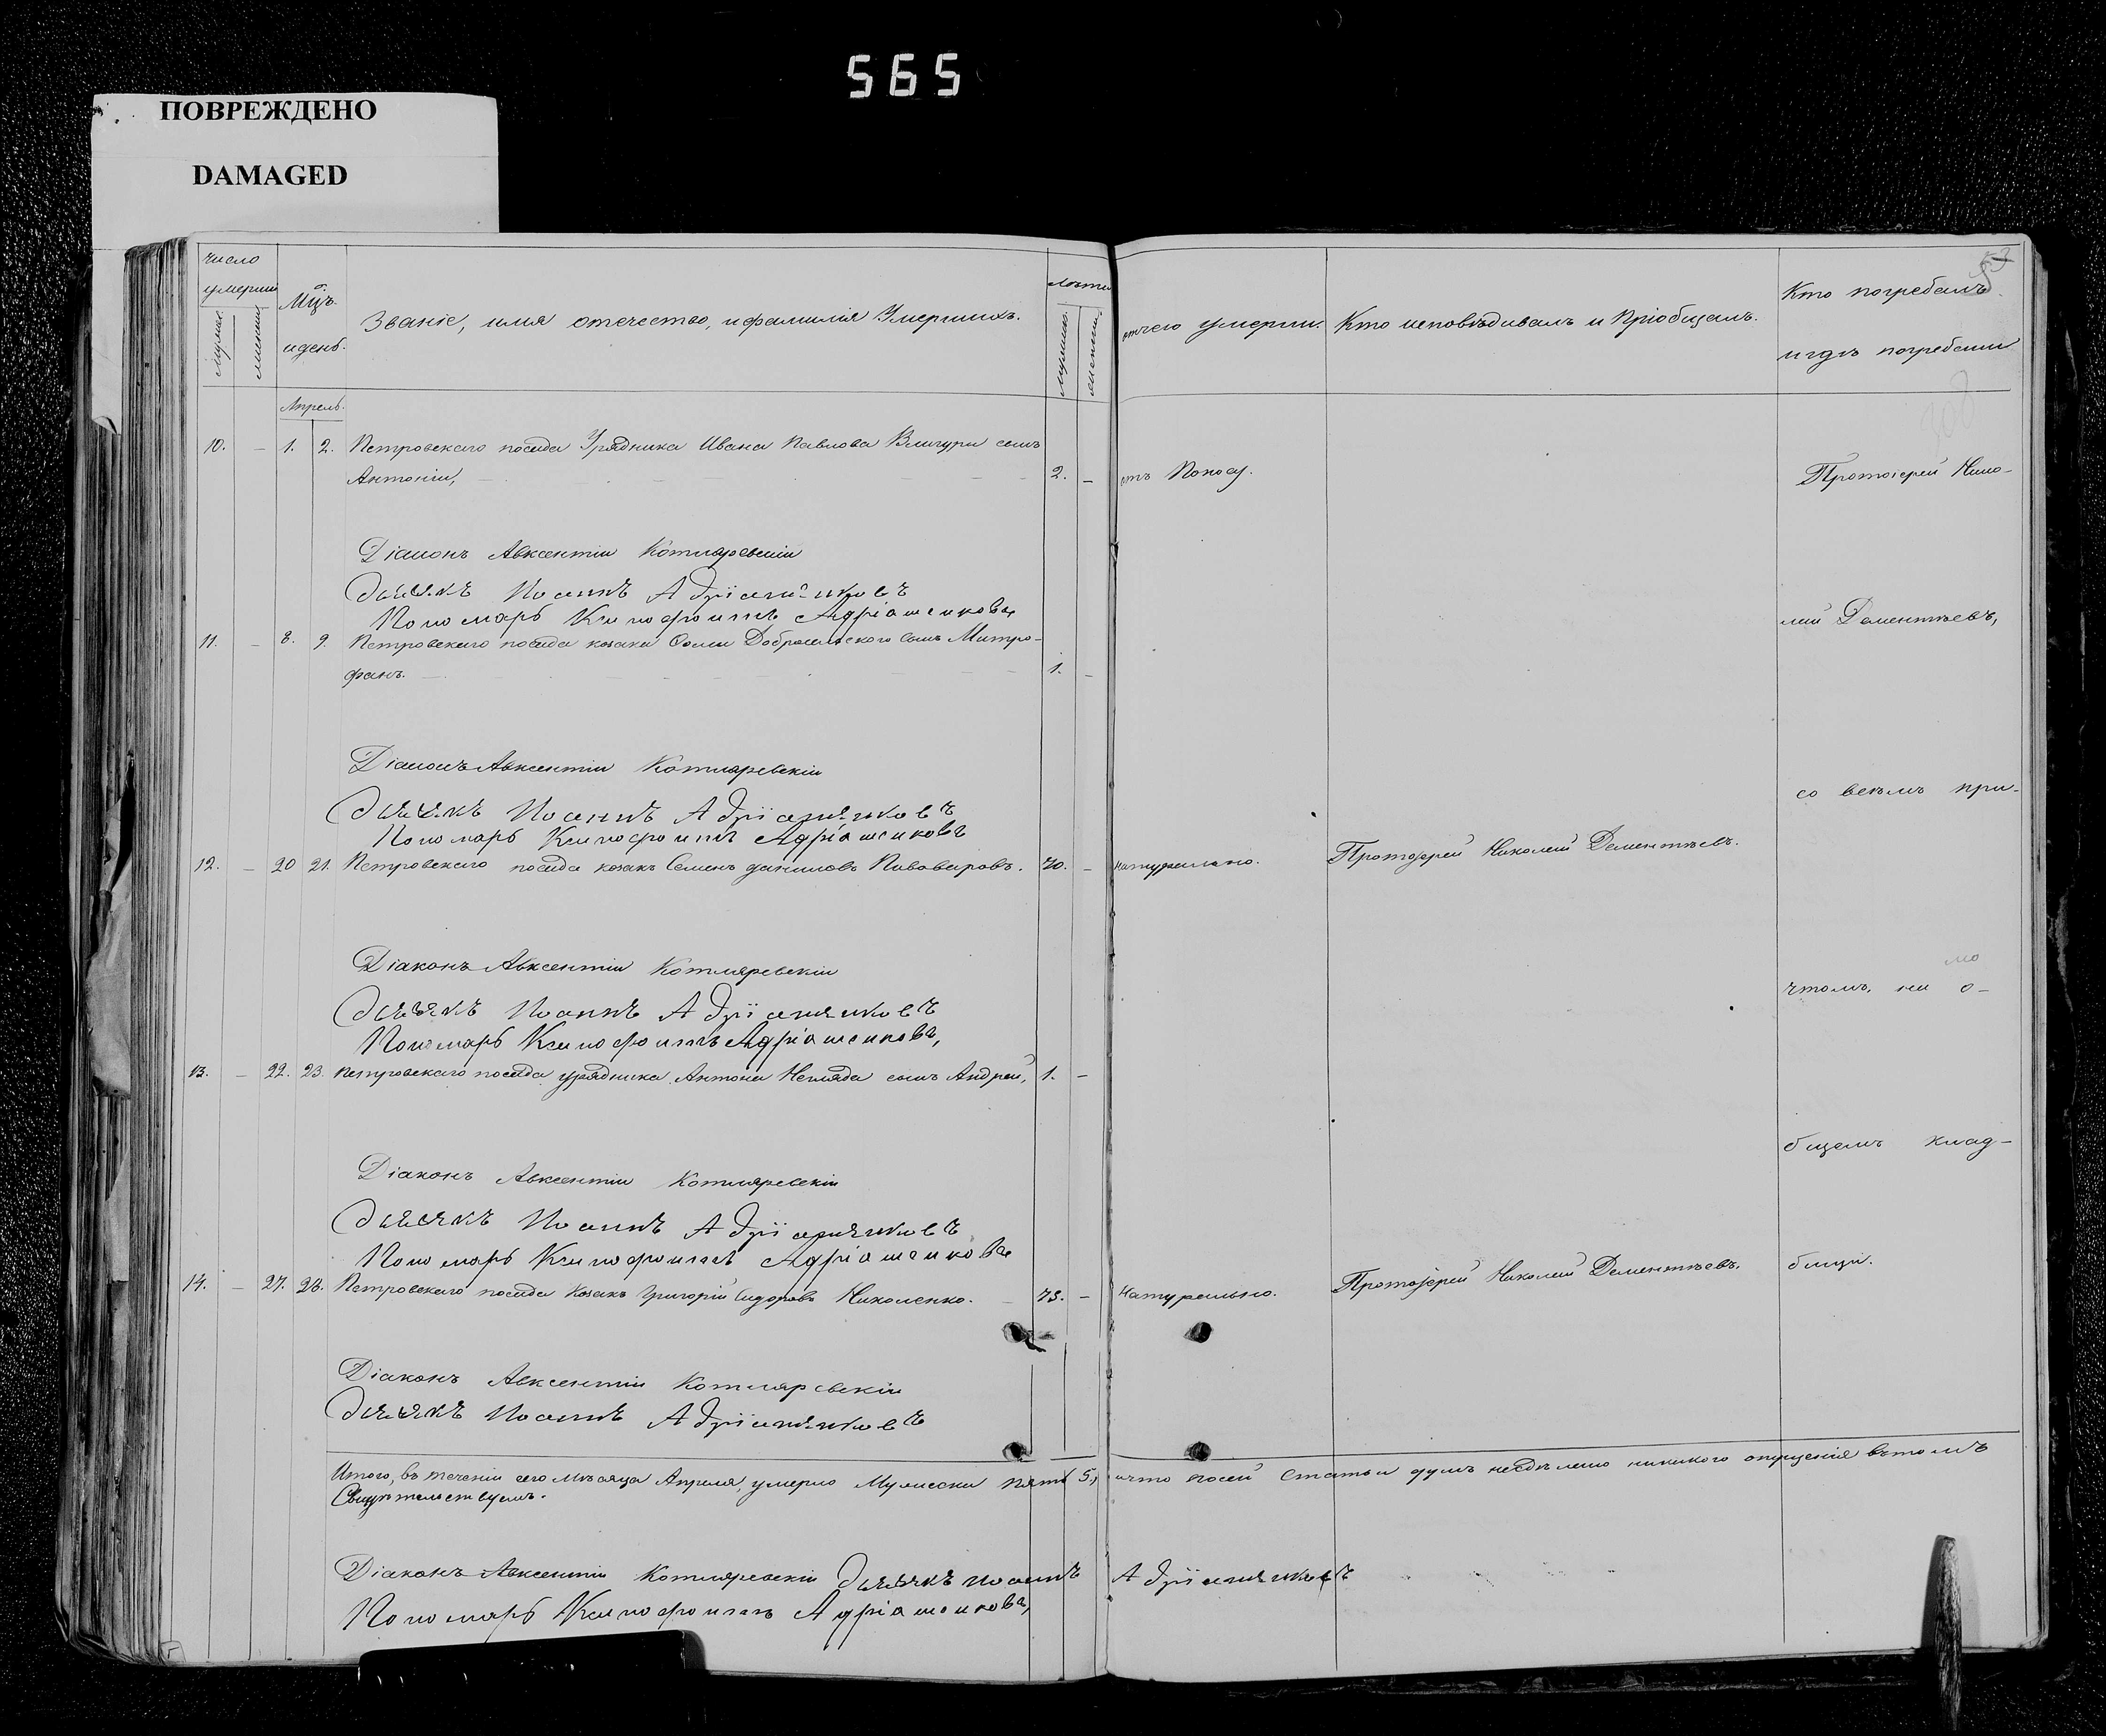 565
ПОВРЕЖДЕНО
DAMAGED
число
умерши
мужес.
женски.
Мцъ.
и день.
Званіе, имя отечество, и фамилія Умершихъ.
лѣта
мужеск.
женски.
отчего умерли.
Кто исповѣдивалъ и Пріобщалъ.
Кто погребалъ
и гдѣ погребени
Апрель.
10. – 1. 2. Петровскаго посада Урядника Ивана Павлова сынъ
Антоній, 2. – отъ Поносу.
Протоіерей Нико-
Діаконъ Авксентій Котляревскій
Дьячекъ Иоаннъ Адріяшковъ
Пономарь Ксинофонтъ Адріашенковъ
11. – 8. 9. Петровскаго посада козака Сынъ Митро-
фанъ. 1. –
лай Дементьевъ,
Діаконъ Авксентій Котляревскій
Дьячекъ Иоаннъ Адріяшковъ
Пономарь Ксинофонтъ Адріашенковъ
со всѣмъ при-
12. – 20 21. Петровскаго посада козакъ Семенъ даниловъ Пивоваровъ. 70. – натурально. Протоіерей Николай Дементьевъ.
Діаконъ Авксентій Котляревскій
Дьячекъ Иоаннъ Адріяшковъ
Пономарь Ксинофонтъ Адріашенковъ,
чтомъ, на о-
13. – 22. 23. Петровскаго посада урядника Антона Негляда сынъ Андрей, 1. –
бщемъ клад-
Діаконъ Авксентій Котляревскій
Дьячекъ Иоаннъ Адріяшковъ
Пономарь Ксинофонтъ Адріашенковъ
14. – 27. 28. Петровскаго посада Козакъ Григорій Сидоровъ Николенко. – 73. – Натурально. Протоіерей Николай Дементьевъ.
бищи.
Діаконъ Авксентій Котляревскій
Дьячекъ Иоаннъ Адріяшковъ
Итого, въ теченіи сего мѣсяца Апреля, умерло Мужеска пять 5, и что посей Статьи душъ несдѣлено никакого опущенія вътомъ
Свидѣтельствуемъ.
Діаконъ Авксентій Котляревскій Дьячекъ Иоаннъ Адріяшковъ
Пономарь Ксинофонтъ Адріашенковъ,